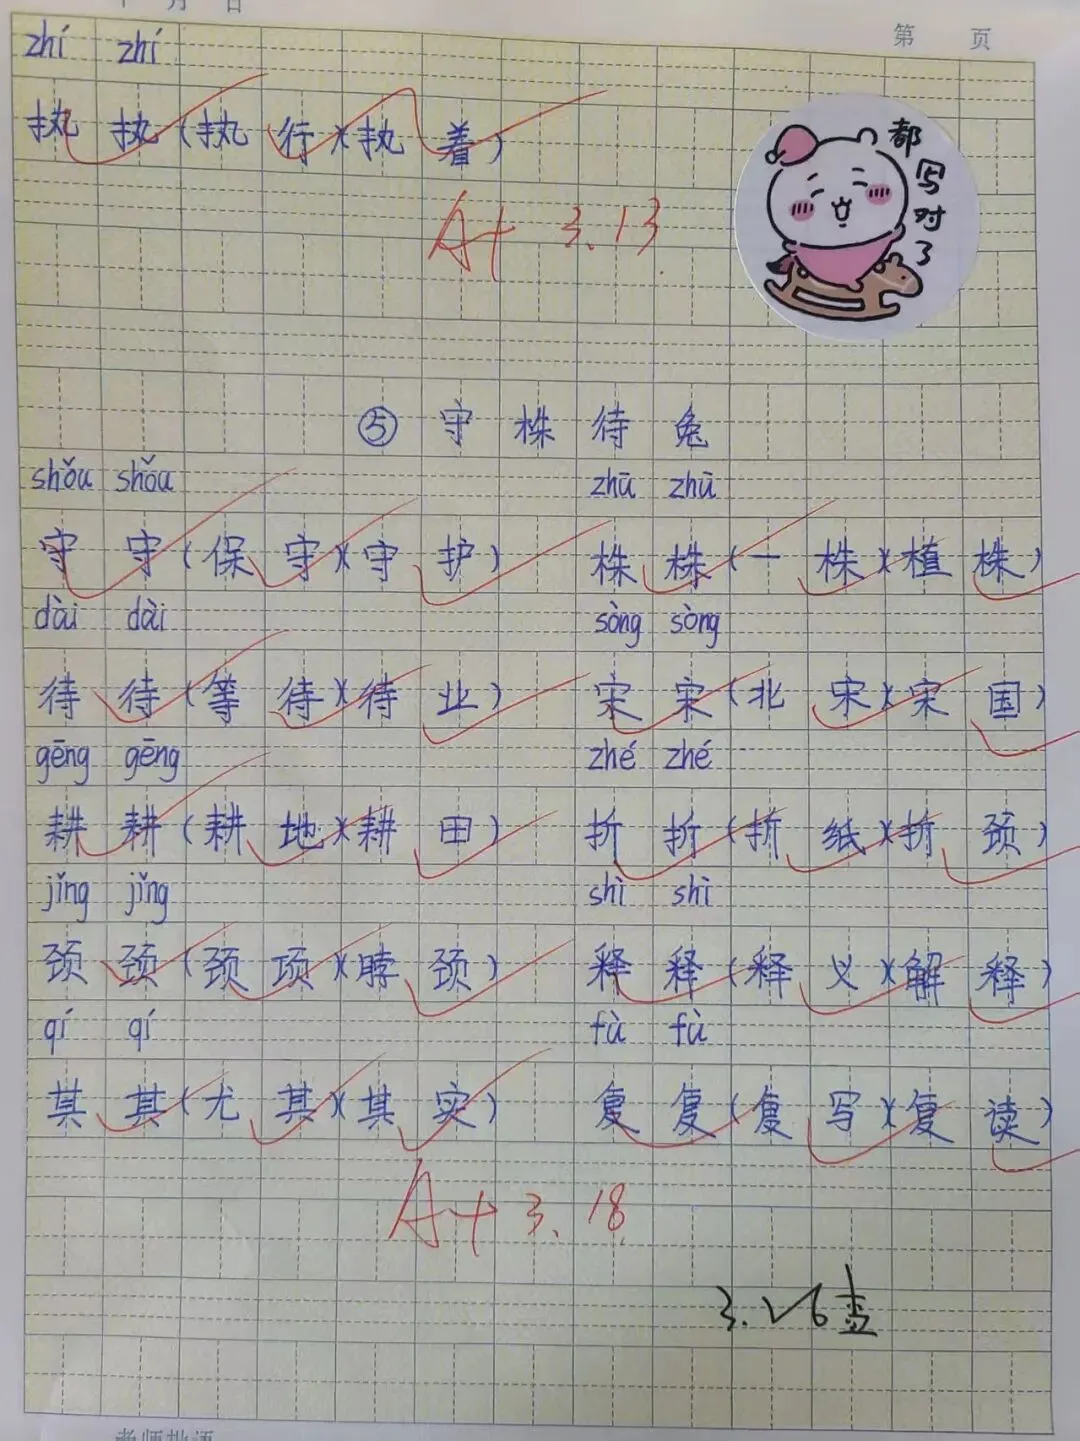 年 月 日
第 页
zhí zhí
执 执(执 行)(执 着)
都写对了
A+ 3.13
⑤ 守 株 待 兔
shǒu shǒu zhū zhū
守 守(保 守)(守 护) 株 株(一 株)(植 株)
dài dài sòng sòng
待 待(等 待)(待 业) 宋 宋(北 宋)(宋 国)
gēng gēng zhé zhé
耕 耕(耕 地)(耕 田) 折 折(折 纸)(折 颈)
jǐng jǐng shì shì
颈 颈(颈 项)(脖 颈) 释 释(释 义)(解 释)
qí qí fù fù
其 其(尤 其)(其 实) 复 复(复 写)(复 读)
A+ 3.18
查
老师批语